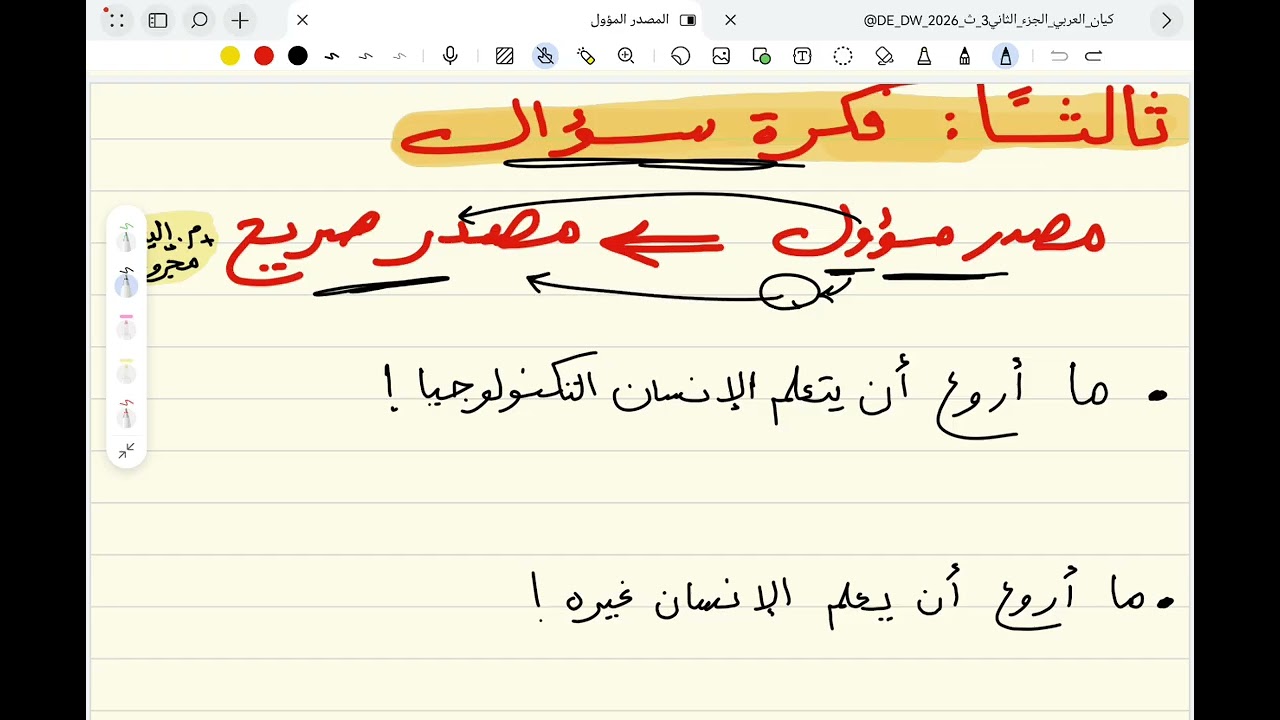 كيان_العربي_الجزء_الثاني3_ث_2026_DE_DW@
المصدر المؤول
ثالثًا: فكرة سؤال
مصدر مؤول ⇐ مصدر صريح
+ م. إليه
مجرو
• ما أروع أن يتعلم الإنسان التكنولوجيا !
• ما أروع أن يعلم الإنسان غيره !